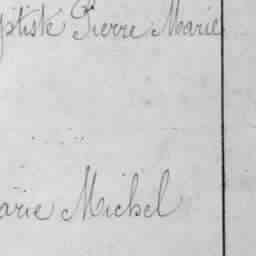 ptiste Pierre Marie
arie Michel